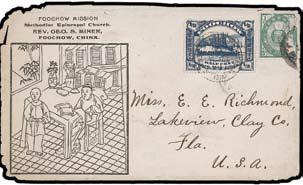 FOOCHOW MISSION
Methodist Episcopal Church.
REV. GEO. S. MINER,
FOOCHOW, CHINA.
Miss. E. E. Richmond,
Lakeview, Clay Co.
Fla.
U.S.A.